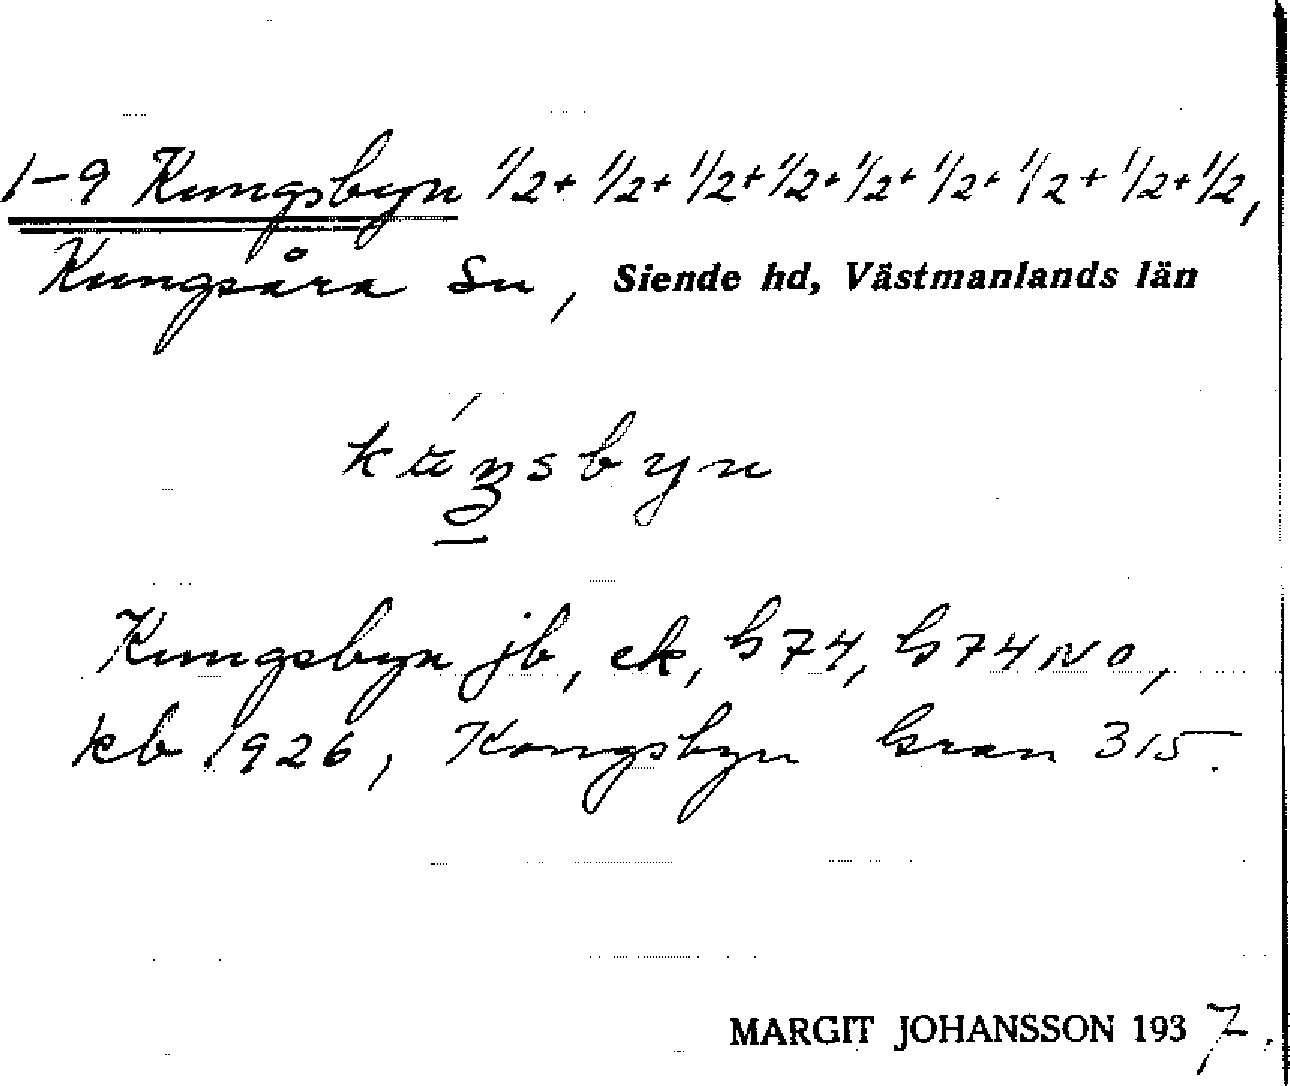 1-9 Kungsbyn 1/2+ 1/2+ 1/2+ 1/2+ 1/2+ 1/2+ 1/2+ 1/2+ 1/2,
Kungsåra Sn, Siende hd, Västmanlands län
Kungsbyn jb, ek, G74, G74 NO,
kb 1926, Kongsbyn Gran 315.
MARGIT JOHANSSON 1937.